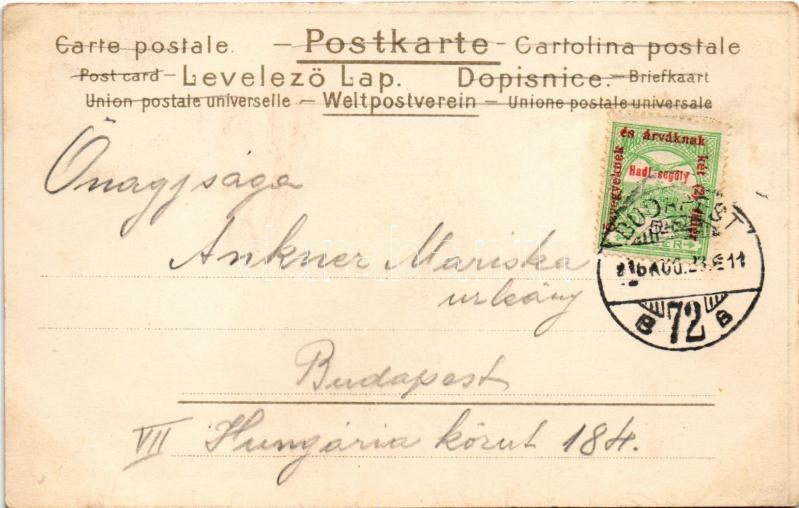 Carte postale. — Postkarte — Cartolina postale
Post card — Levelező Lap. Dopisnice. — Briefkaart
Union postale universelle — Weltpostverein — Unione postale universale
özvegyeknek és árváknak két (2) fillér
Hadi segély
BUDAPEST
72
B B
Önagysága
Ankner Mariska
urleány
Budapest
VII Hungária körut 184.